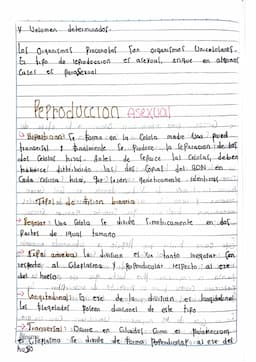 y Volumen determinados.
Los Organismos Procariotas Son organismos Unicelulares.
Su tipo de reproduccion es asexual, aunque en algunos
Casos es parasexual
Reproduccion Asexual
Biparticion: Se forma en la Celula madre Una pared
transversal y finalmente Se Produce la Separacion de dos
dos Celulas hijas. Antes de Separse las Celulas, deben
haberse distribuido las dos Copias del ADN en
Cada Celula hija, que seran geneticamente identicas
Tipos de fision binaria
Regular: Una Celula Se divide Simetricamente en dos
Partes de igual tamaño
Tipo ameba: la division es Un tanto irregular Con
respecto al Citoplasma y Perpendicular respecto al eje
del huso
Longitudinal: El eje de la division es longitudinal
los flagelados Poseen duscanel de este tipo
Transversal: Ocurre en Ciliados Como el Paramecium
el Citoplasma Se divide de forma Perpendicular al eje del
huso